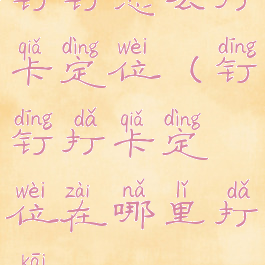 钉钉怎么打
qiǎ dìng wèi dīng
卡定位（钉
dīng dǎ qiǎ dìng
钉打卡定
wèi zài nǎ lǐ dǎ
位在哪里打
kāi